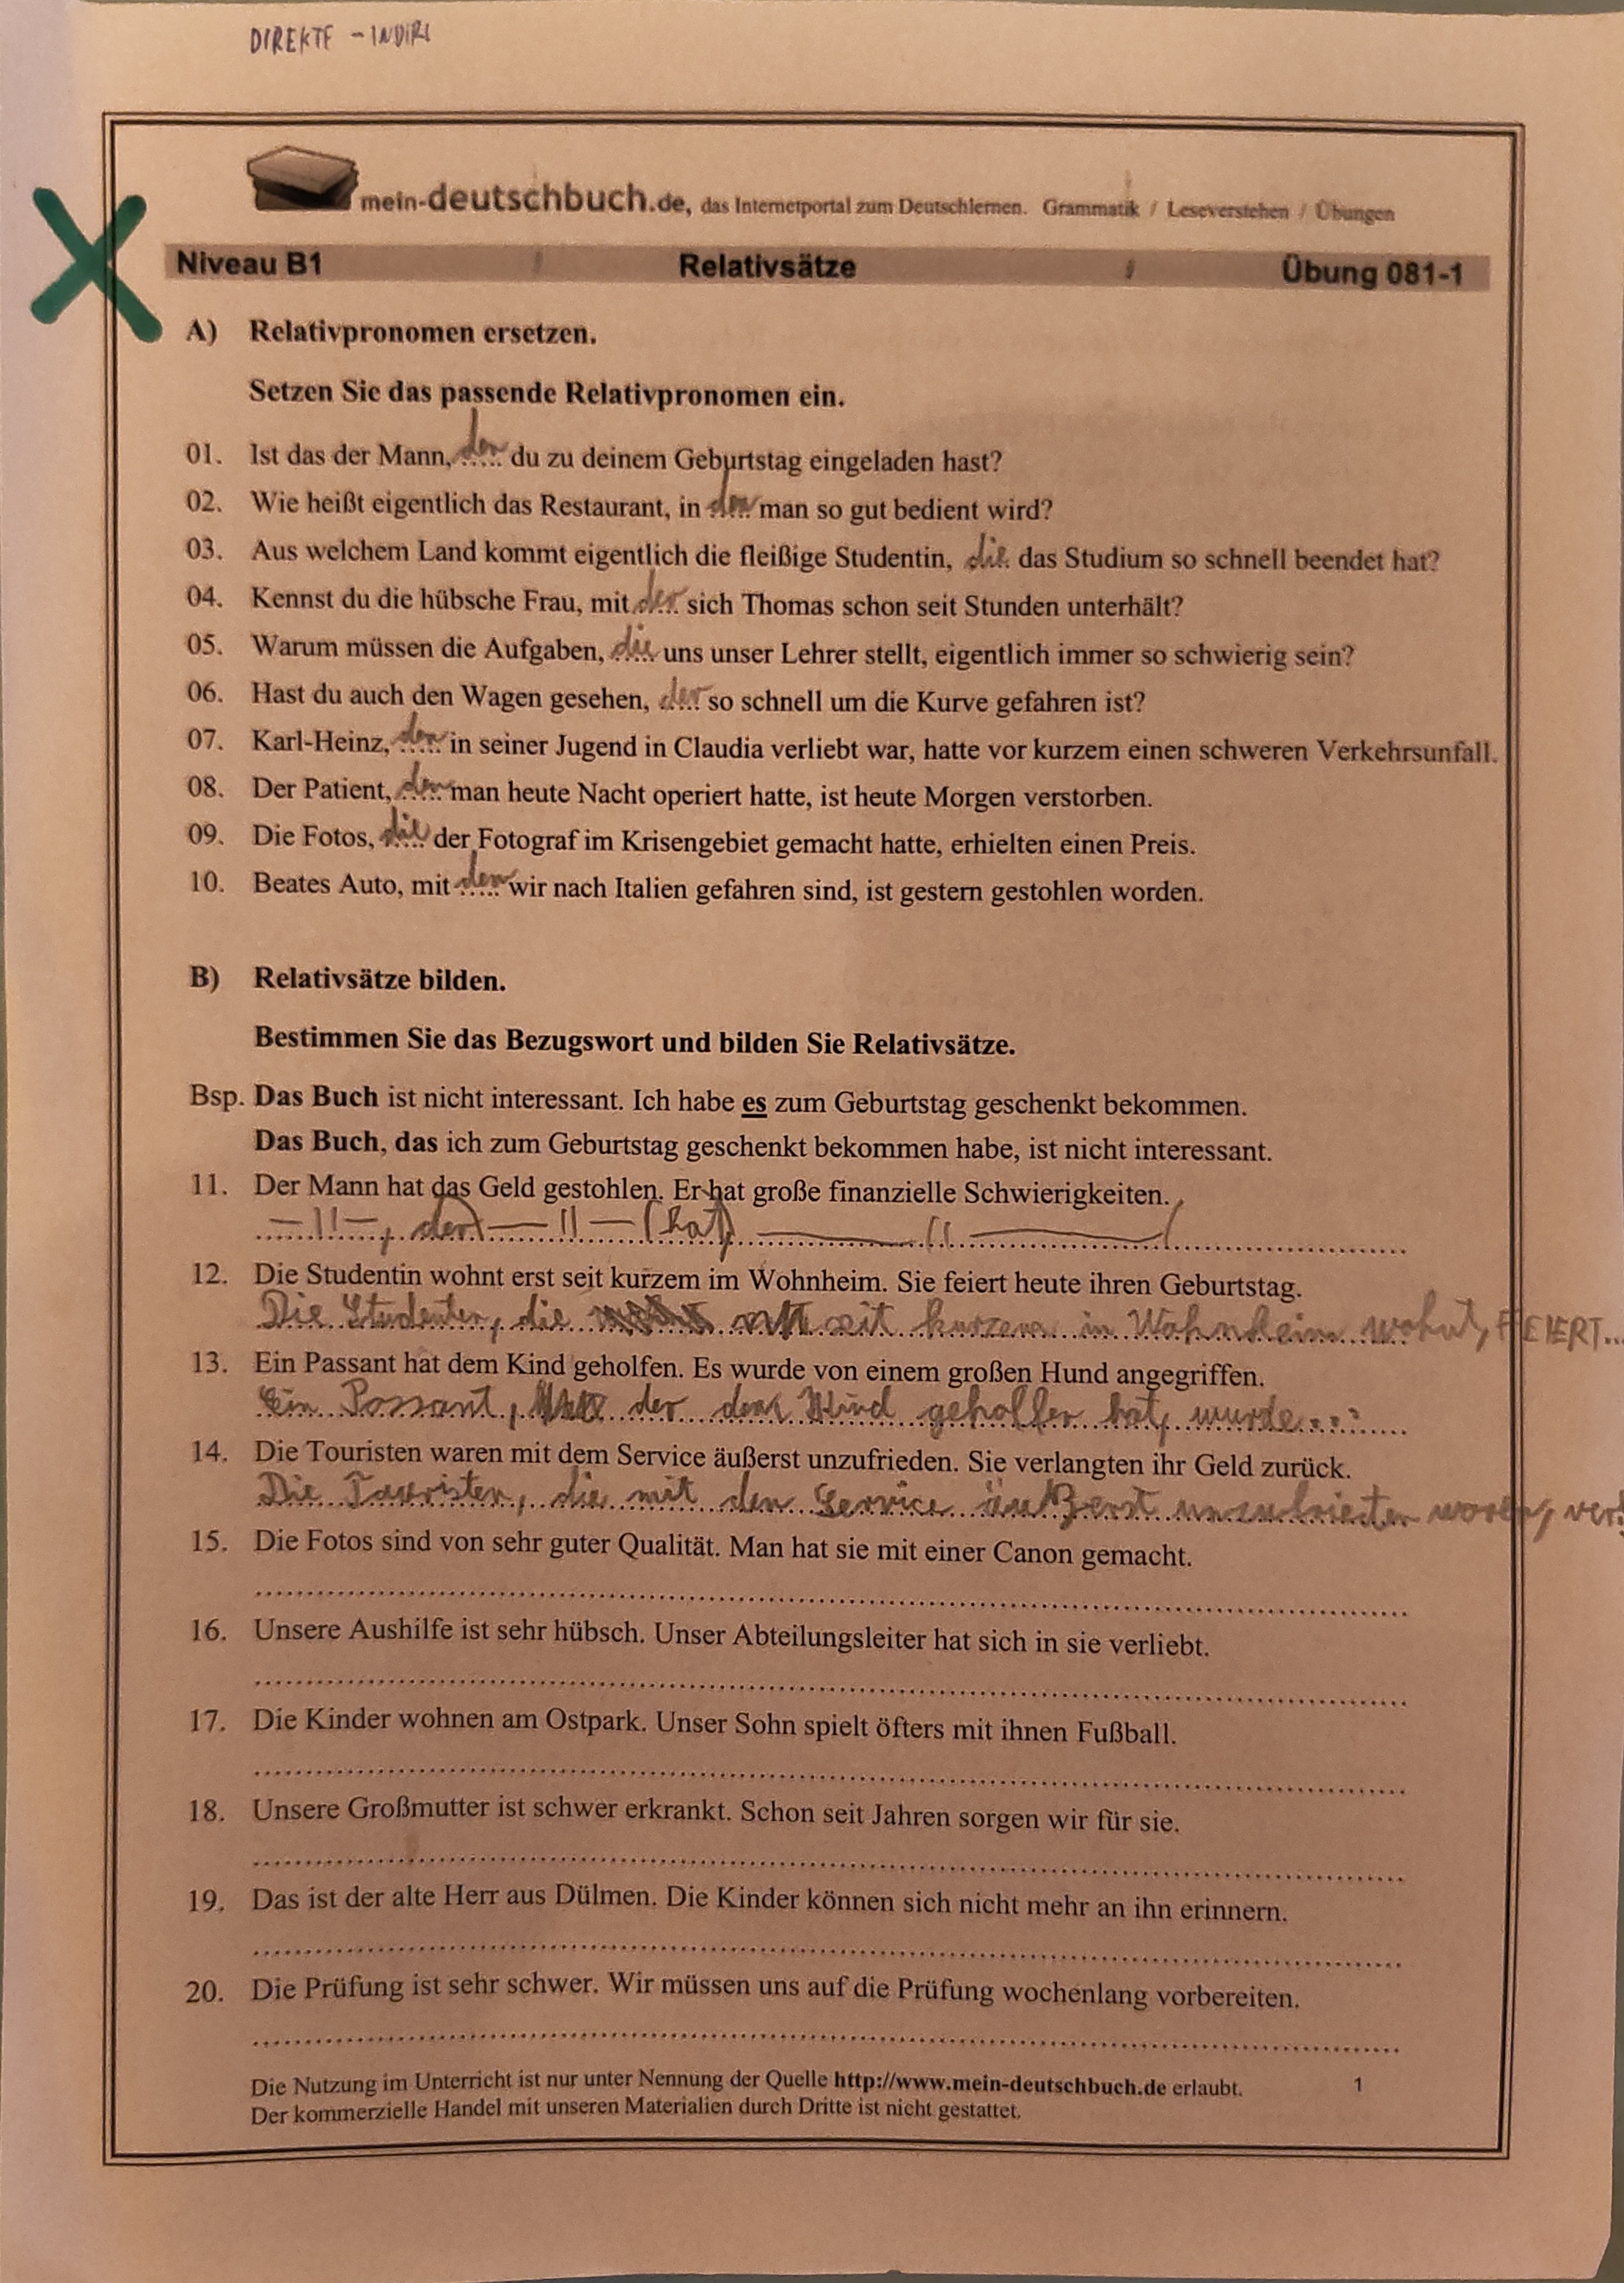 DIREKTE - INDIR
mein-deutschbuch.de, das Internetportal zum Deutschlernen. Grammatik / Leseverstehen / Übungen
Niveau B1 Relativsätze Übung 081-1
A) Relativpronomen ersetzen.
Setzen Sie das passende Relativpronomen ein.
01. Ist das der Mann, den du zu deinem Geburtstag eingeladen hast?
02. Wie heißt eigentlich das Restaurant, in man so gut bedient wird?
03. Aus welchem Land kommt eigentlich die fleißige Studentin, die das Studium so schnell beendet hat?
04. Kennst du die hübsche Frau, mit der sich Thomas schon seit Stunden unterhält?
05. Warum müssen die Aufgaben, die uns unser Lehrer stellt, eigentlich immer so schwierig sein?
06. Hast du auch den Wagen gesehen, der so schnell um die Kurve gefahren ist?
07. Karl-Heinz, in seiner Jugend in Claudia verliebt war, hatte vor kurzem einen schweren Verkehrsunfall.
08. Der Patient, den man heute Nacht operiert hatte, ist heute Morgen verstorben.
09. Die Fotos, die der Fotograf im Krisengebiet gemacht hatte, erhielten einen Preis.
10. Beates Auto, mit wir nach Italien gefahren sind, ist gestern gestohlen worden.
B) Relativsätze bilden.
Bestimmen Sie das Bezugswort und bilden Sie Relativsätze.
Bsp. Das Buch ist nicht interessant. Ich habe es zum Geburtstag geschenkt bekommen.
Das Buch, das ich zum Geburtstag geschenkt bekommen habe, ist nicht interessant.
11. Der Mann hat das Geld gestohlen. Er hat große finanzielle Schwierigkeiten.
—11—, der —11— (hat) —11—
12. Die Studentin wohnt erst seit kurzem im Wohnheim. Sie feiert heute ihren Geburtstag.
Die die seit kurzem in Wohnheim wohnt, FEIERT...
13. Ein Passant hat dem Kind geholfen. Es wurde von einem großen Hund angegriffen.
Ein Passant, der dem Kind geholfen hat, wurde...
14. Die Touristen waren mit dem Service äußerst unzufrieden. Sie verlangten ihr Geld zurück.
Die Touristen, die mit den Service äußerst unzufrieden waren, ver
15. Die Fotos sind von sehr guter Qualität. Man hat sie mit einer Canon gemacht.
16. Unsere Aushilfe ist sehr hübsch. Unser Abteilungsleiter hat sich in sie verliebt.
17. Die Kinder wohnen am Ostpark. Unser Sohn spielt öfters mit ihnen Fußball.
18. Unsere Großmutter ist schwer erkrankt. Schon seit Jahren sorgen wir für sie.
19. Das ist der alte Herr aus Dülmen. Die Kinder können sich nicht mehr an ihn erinnern.
20. Die Prüfung ist sehr schwer. Wir müssen uns auf die Prüfung wochenlang vorbereiten.
Die Nutzung im Unterricht ist nur unter Nennung der Quelle http://www.mein-deutschbuch.de erlaubt. 1
Der kommerzielle Handel mit unseren Materialien durch Dritte ist nicht gestattet.